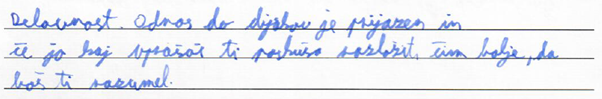 Delavnost. Odnos do dijakov je prijazen in
če jo kaj vprašaš ti poskuša razložit, čim bolje, da
boš ti razumel.